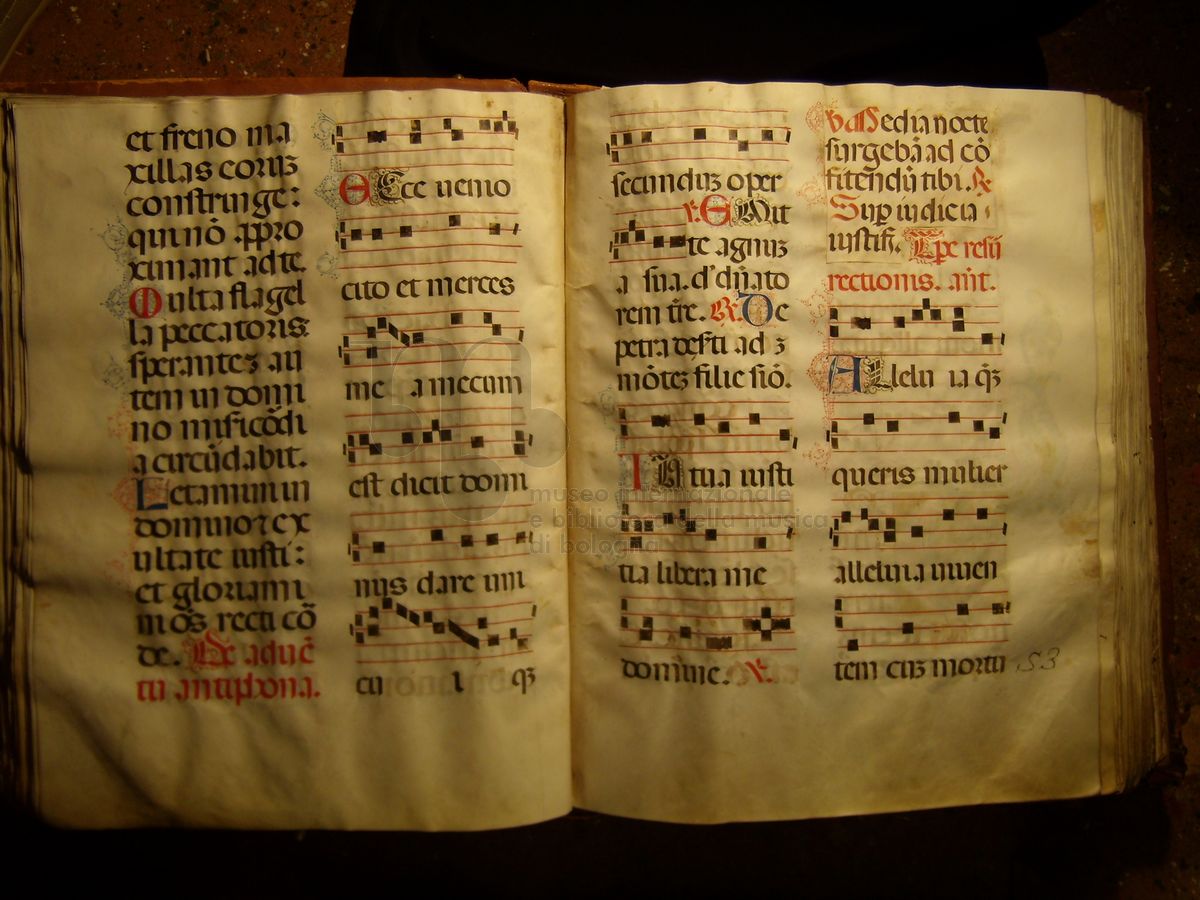 et freno ma
xillas coruʒ
constringe:
qui nō appro
ximant ad te.
Multa flagel
la peccatoris
sperantez au
tem in domi
no misicōdi
a circūdabit.
Letamini in
domino ⁊ ex
ultate iusti:
et gloriami
ni ōs recti cō
de. De aduē
tu antiphona.
ECce uenio
cito et merces
mea mecum
est dicit domi
nus dare uni
cuiqʒ
secunduʒ oper
v. EMit
te agnuʒ
a sua. d' dn̄ato
rem tr̄e. R. De
petra deserti ad
mōtez filie siō.
IN tua iusti
tia libera me
domine. R.
Media nocte
surgebā ad cō
fitendū tibi. R
Sup iudicia
iustifi. Tpe resu
rectionis. ant.
ALleluia qʒ
queris mulier
alleluia uiuen
tem cuʒ mortu
53
museo internazionale
e biblioteca della musica
di bologna